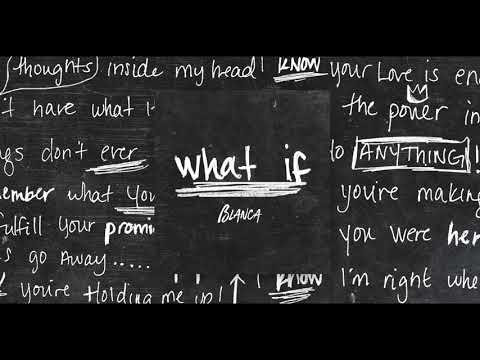 (thoughts) inside my head! KNOW
't have what I
gs don't ever
member what you
ulfill your promi
s go AWAY.....
you're Holding me up! ↑ I know
what if
BLANCA
your Love is en
the power in
to ANYTHING!
you're making
you were her
I'm right whe